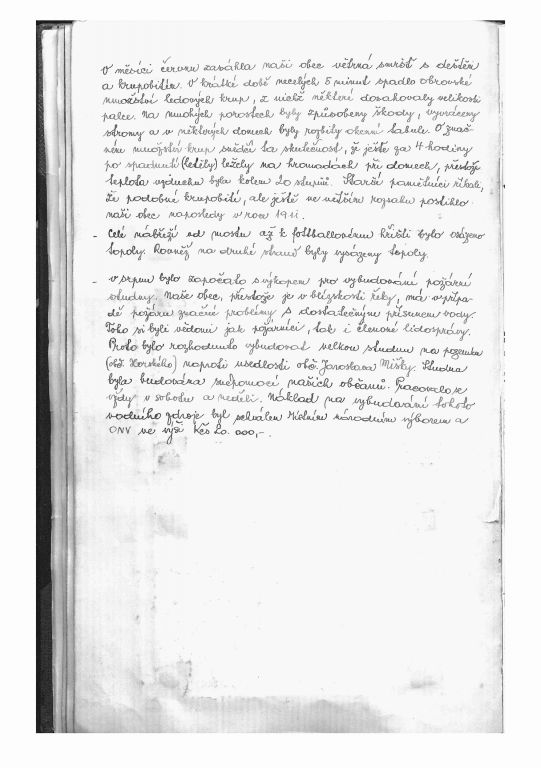 V měsíci červnu zasáhla naši obec větrná smršť s deštěm
a krupobitím. V krátké době necelých 5 minut spadlo obrovské
množství ledových krup, z nichž některé dosahovaly velikosti
palce. Na mnohých porostech byly způsobeny škody, vyvráceny
stromy a v některých domech byly rozbity okenní tabule. O znač-
ném množství krup svědčí ta skutečnost, že ještě za 4 hodiny
po spadnutí (ležely) ležely na hromadách při domech, přestože
teplota vzduchu byla kolem 20 stupňů. Starší pamětníci říkali,
že podobné krupobití, ale ještě ve větším rozsahu postihlo
naši obec naposledy v roce 1911.
- Celé nábřeží od mostu až k fotballovému hřišti bylo osázeno
topoly. Rovněž na druhé straně byly vysázeny topoly.
- V srpnu bylo započato s výkopem pro vybudování požární
studny. Naše obec, přestože je v blízkosti řeky, má v přípa-
dě požáru značné problémy s dostatečným přísunem vody.
Toho si byli vědomi jak požárníci, tak i členové lidosprávy.
Proto bylo rozhodnuto vybudovat velkou studnu na pozemku
(obč. Horského) naproti usedlosti obč. Jaroslava Mišky. Studna
byla budována svépomocí našich občanů. Pracovalo se
vždy v sobotu a neděli. Náklad na vybudování tohoto
vodního zdroje byl schválen Místním národním výborem a
ONV ve výši Kčs 20.000,-.